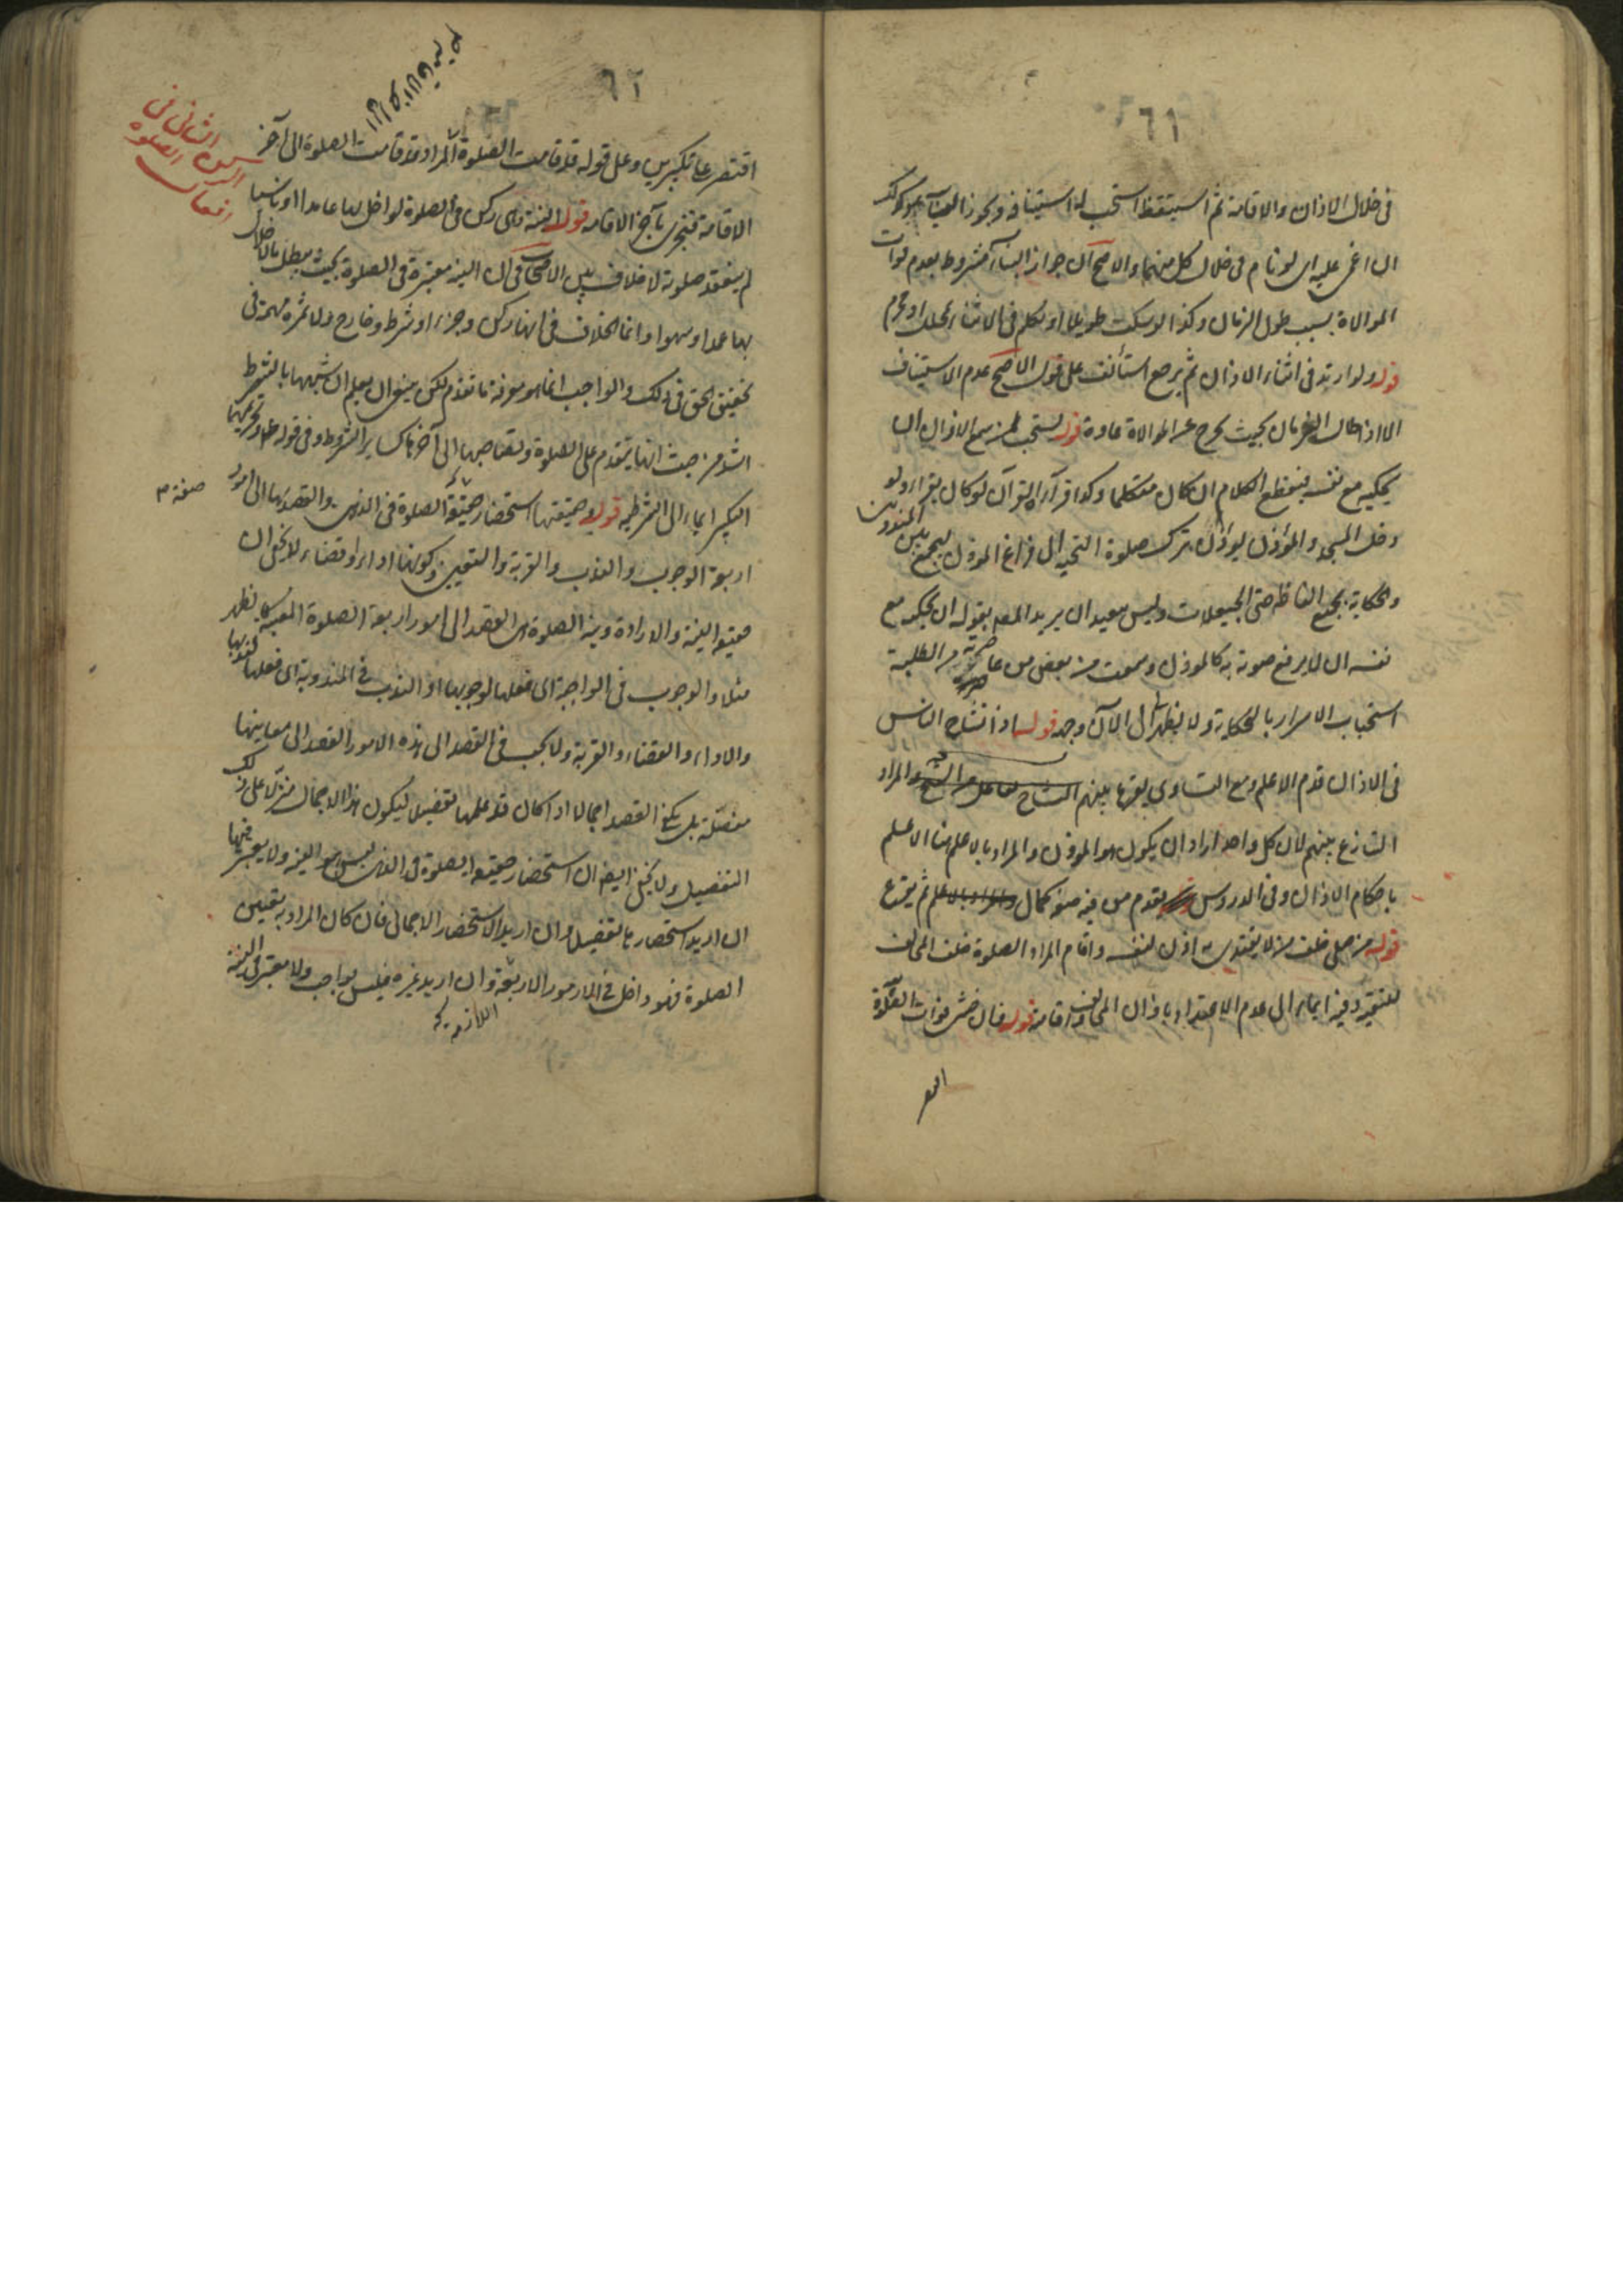 ٦١
فى خلال الاذان والاقامة ثم استيقظ استحب له استينافه ويجوز البناء وكذلك
ان اغمى عليه اى لو نام فى خلال كل منهما والاصح ان جواز البناء مشروط بعدم فوات
الموالاة بسبب طول الزمان وكذا لو سكت طويلا او تكلم فى الاثناء بمحلل او محرم
قوله ولو ارتد فى اثناء الاذان ثم رجع استأنف على قول الاصح عدم الاستيناف
الا اذا طال الزمان بحيث يخرج عن الموالاة عادة قوله يستحب لمن سمع الاذان ان
يحكيه مع نفسه فيقطع الكلام ان كان متكلما وكذا قرآءة القرآن لو كان يقرء ولو
دخل المسجد والمؤذن يؤذن ترك صلوة التحية الى فراغ المؤذن ليجمع بين المندوبين
والحكاية بجميع الفاظه حتى الحيعلات وليس ببعيد ان يريد المصـ بقوله ان يحكيه مع
نفسه ان لا يرفع صوته به كالموذن وسمعت من بعض من عاصرته من الطلبة
استحباب الاسرار بالحكاية ولا يظهر الى الآن وجهه قوله اذا تشاح الناس
فى الاذان قدم الاعلم ومع التساوى يقرع بينهم التشاح والمراد
التنازع بينهم لان كل واحد اراد ان يكون هو الموذن والمراد بالاعلم هنا الاعلم
باحكام الاذان وفى الدروس يقدم من فيه صفة كمال ثم يقرع
قوله من صلى خلف من لا يقتدى به اذن لنفسه واقام المراد الصلوة خلف المخالف
للتقية وفيه ايماء الى عدم الاعتداد باذان المخالف واقامته قوله فان خشى فوات الصلوة
اقتصر
٦٢
الثانى فى
افعال الصلوة
اقتصر على تكبيرين وعلى قوله قد قامت الصلوة المراد قد قامت الصلوة الى آخر
الاقامة فتجزى بآخر الاقامة قوله النية وهى ركن فى الصلوة لو اخل بها عامدا او ناسيا
لم ينعقد صلوته لا خلاف بين الاصحاب فى ان النية معتبرة فى الصلوة بحيث يبطل بالاخلال
بها عمدا وسهوا وانما الخلاف فى انها ركن وجزء او شرط وخارج ولا ثمرة مهمة فى
تحقيق الحق فى ذلك والواجب انما هو معرفة ما تقدم لكن ينبغى ان يعلم ان شبهها بالشرط
اشد من حيث انها يتقدم على الصلوة ويصاحبها الى آخرها كساير الشروط وفى قوله ع وتحريمها
التكبير ايماء الى الشرطية قوله وحقيقتها استحضار حقيقة الصلوة فى الذهن والقصد بها الى امور
اربعة الوجوب والندب والقربة والتعيين وكونها اداء او قضاء لا يخفى ان
حقيقة النية والارادة ونية الصلوة هى القصد الى امور اربعة الصلوة المعينة كالظهر
مثلا والوجوب فى الواجبة اى فعلها لوجوبها او الندب فى المندوبة اى فعلها لندبها
والاداء والقضاء والقربة ولا يجب فى القصد الى هذه الامور القصد الى معانيها
مفصلة بل يكفى القصد اجمالا اذا كان قد علمها بتفصيل ليكون هذا الاجمال منزلا على ذلك
التفصيل ولا يخفى ايضا ان استحضار حقيقة الصلوة فى الذهن ليس هو النية ولا يعتبر فيها
ان اريد استحضارها تفصيلا وان اريد الاستحضار الاجمالى فان كان المراد به تعيين
الصلوة فهو داخل فى الامور الاربعة وان اريد غيره فليس بواجب ولا معتبر فى النية
اللازم